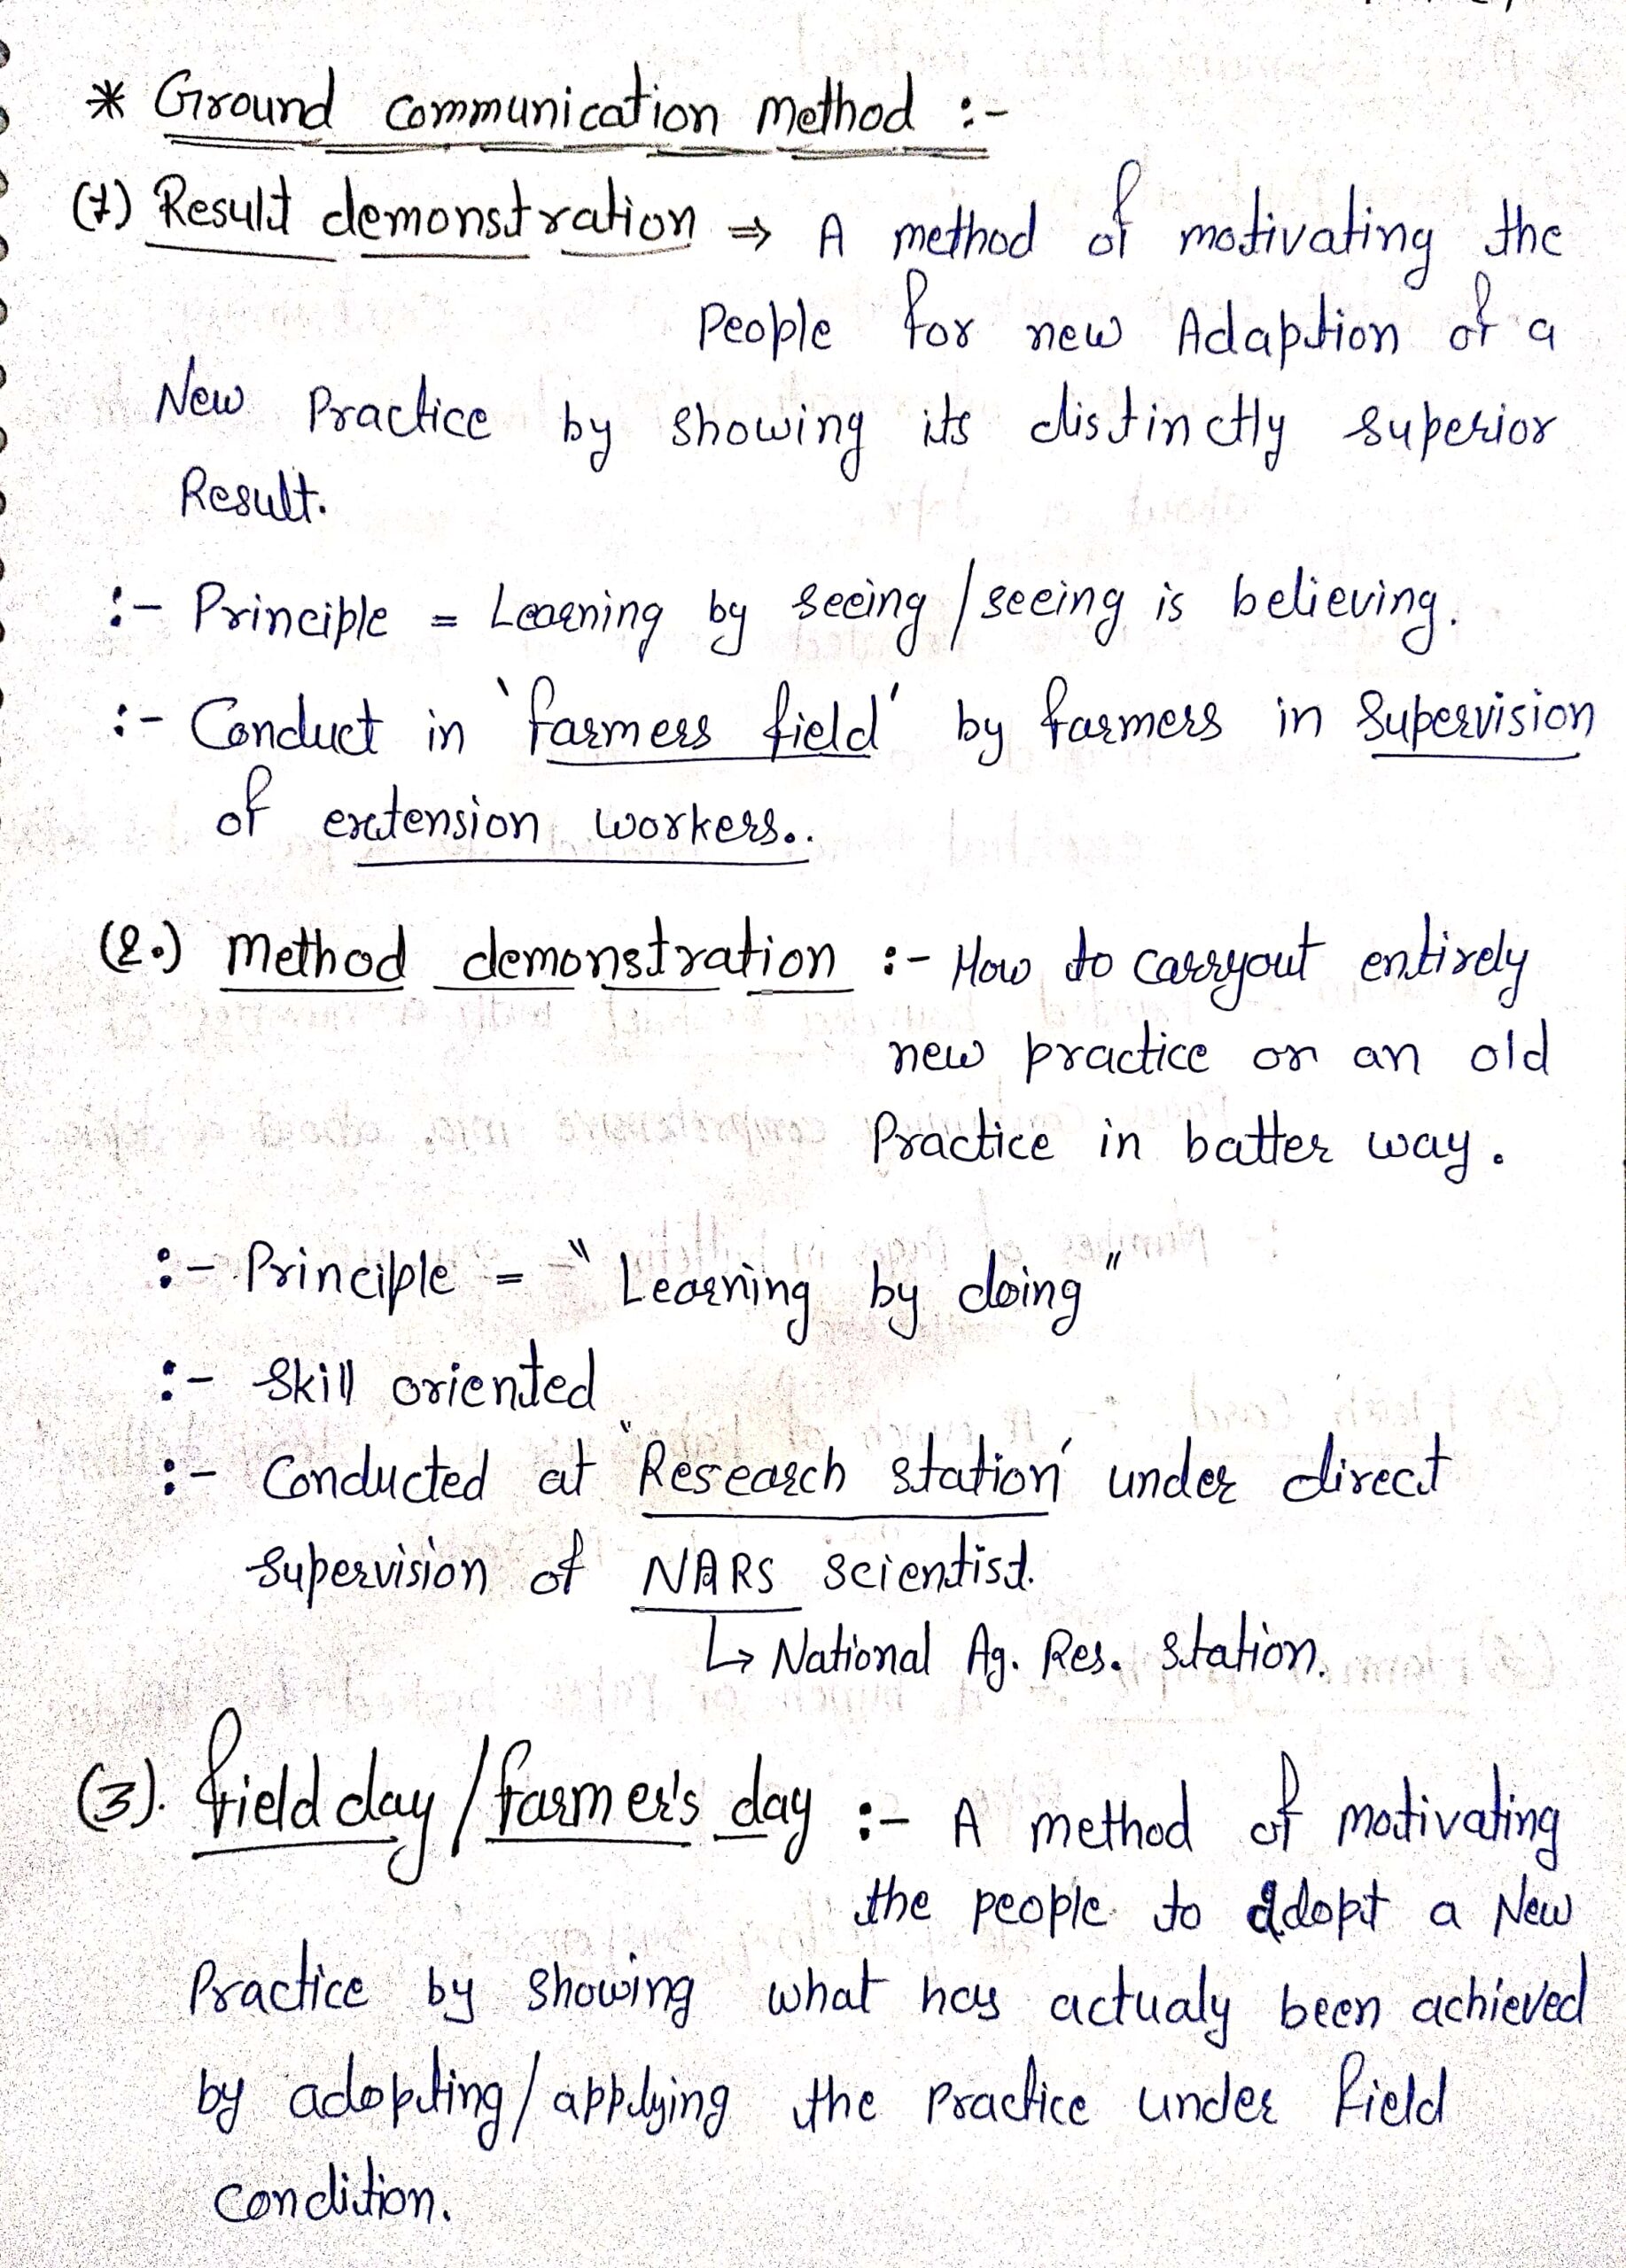 * Ground communication Method :-
(1) Result demonstration ⇒ A method of motivating the
People for new Adaption of a
New Practice by showing its distinctly superior
Result.
:- Principle = Learning by seeing / seeing is believing.
:- Conduct in 'farmers field' by farmers in Supervision
of extension workers..
(2.) Method demonstration :- How to carryout entirely
new practice or an old
Practice in batter way.
:- Principle = "Learning by doing"
:- Skill oriented
:- Conducted at "Research station' under direct
Supervision of NARS scientist.
↳ National Ag. Res. Station.
(3). field day / farmer's day :- A method of motivating
the people to adopt a New
Practice by showing what has actualy been achieved
by adopting / applying the Practice under field
condition.